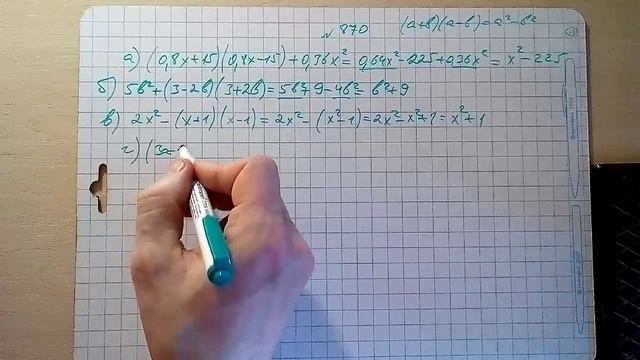 № 870 (a+b)(a-b)=a²-b²
а) (0,8x+15)(0,8x-15)+0,36x²=0,64x²-225+0,36x²=x²-225
б) 5b²+(3-2b)(3+2b)=5b²+9-4b²=b²+9
в) 2x²-(x+1)(x-1)=2x²-(x²-1)=2x²-x²+1=x²+1
г) (3a-